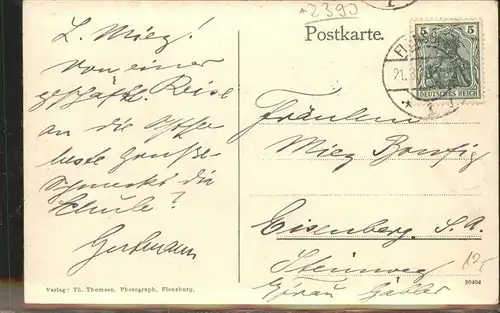 *2390
Postkarte.
5 5
DEUTSCHES REICH
L. Mieg!
Von einer
geschäftl. Reise
an die Ostsee
beste Grüße.
Schmeckt die
Schule?
Gerhmann
Fräulein
Mieg
Eisenberg. S. A.
Steinweg
b/Frau
10.-
Verlag: Th. Thomsen, Photograph, Flensburg.
90404